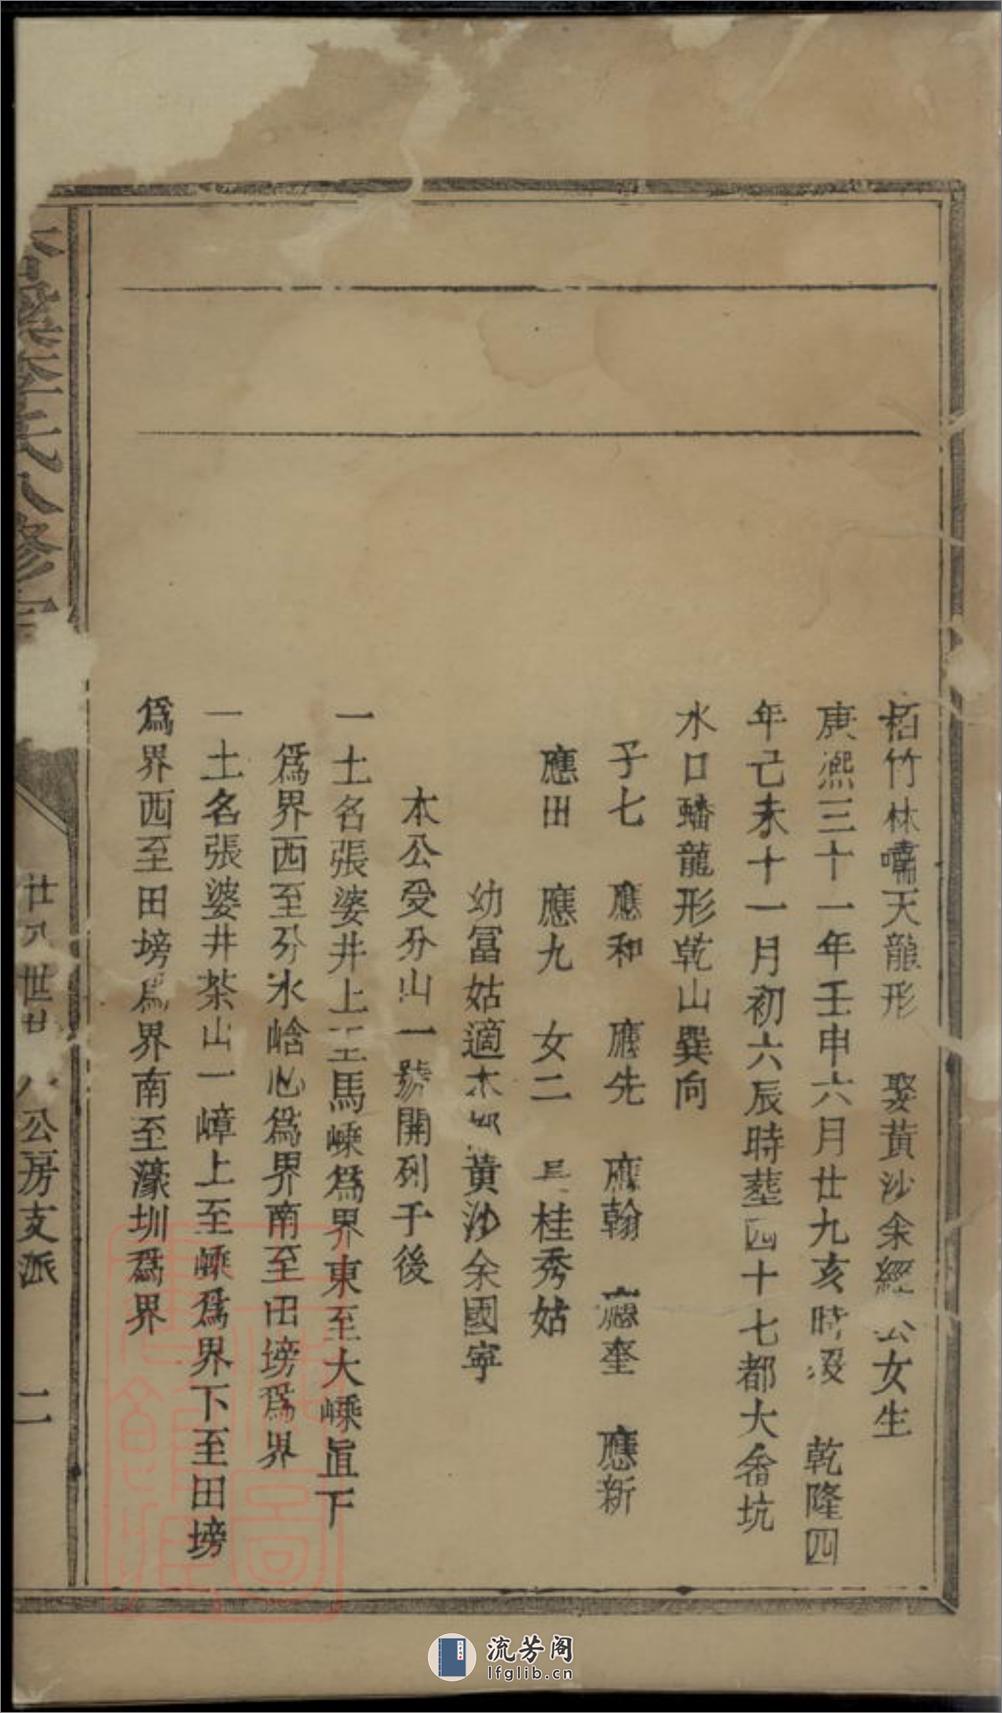 栢竹林嘯天龍形　娶黃沙余經公女生
康熙三十一年壬申六月廿九亥時歿　乾隆四
年己未十一月初六辰時塟四十七都大畨坑
水口蟠龍形乾山巽向
子七　應和　應先　應翰　應奎　應新
應田　應九　女二　長桂秀姑
幼冨姑適 黃沙余國寧
本公受分山一號開列于後
一土名張婆井上至馬嵊爲界東至大嵊直下
爲界西至分水崤心爲界南至田塝爲界
一土名張婆井茶山一嶂上至嵊爲界下至田塝
爲界西至田塝爲界南至濠圳爲界
溪李氏八修
廿八世廿 八公房支派　二
流芳阁
lfglib.cn